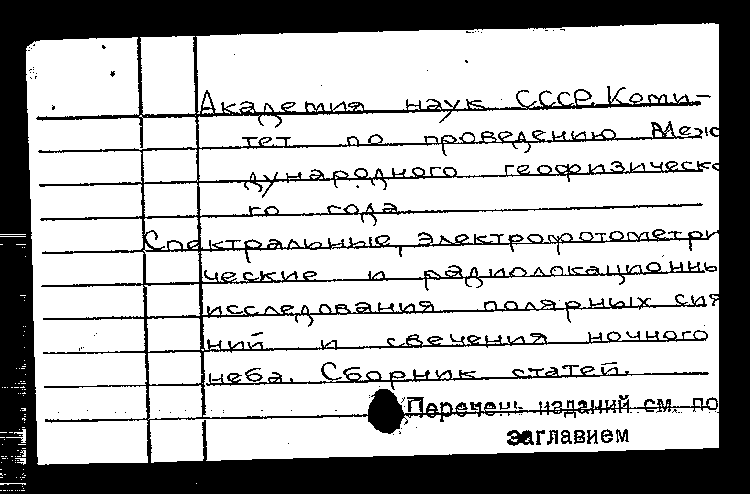 Академия наук СССР. Коми-
тет по проведению Меж
дународного геофизическо
го года
Спектральные, электрофотометри
ческие и радиолокационны
исследования полярных сия
ний и свечения ночного
неба. Сборник статей.
Перечень изданий см. по
заглавием